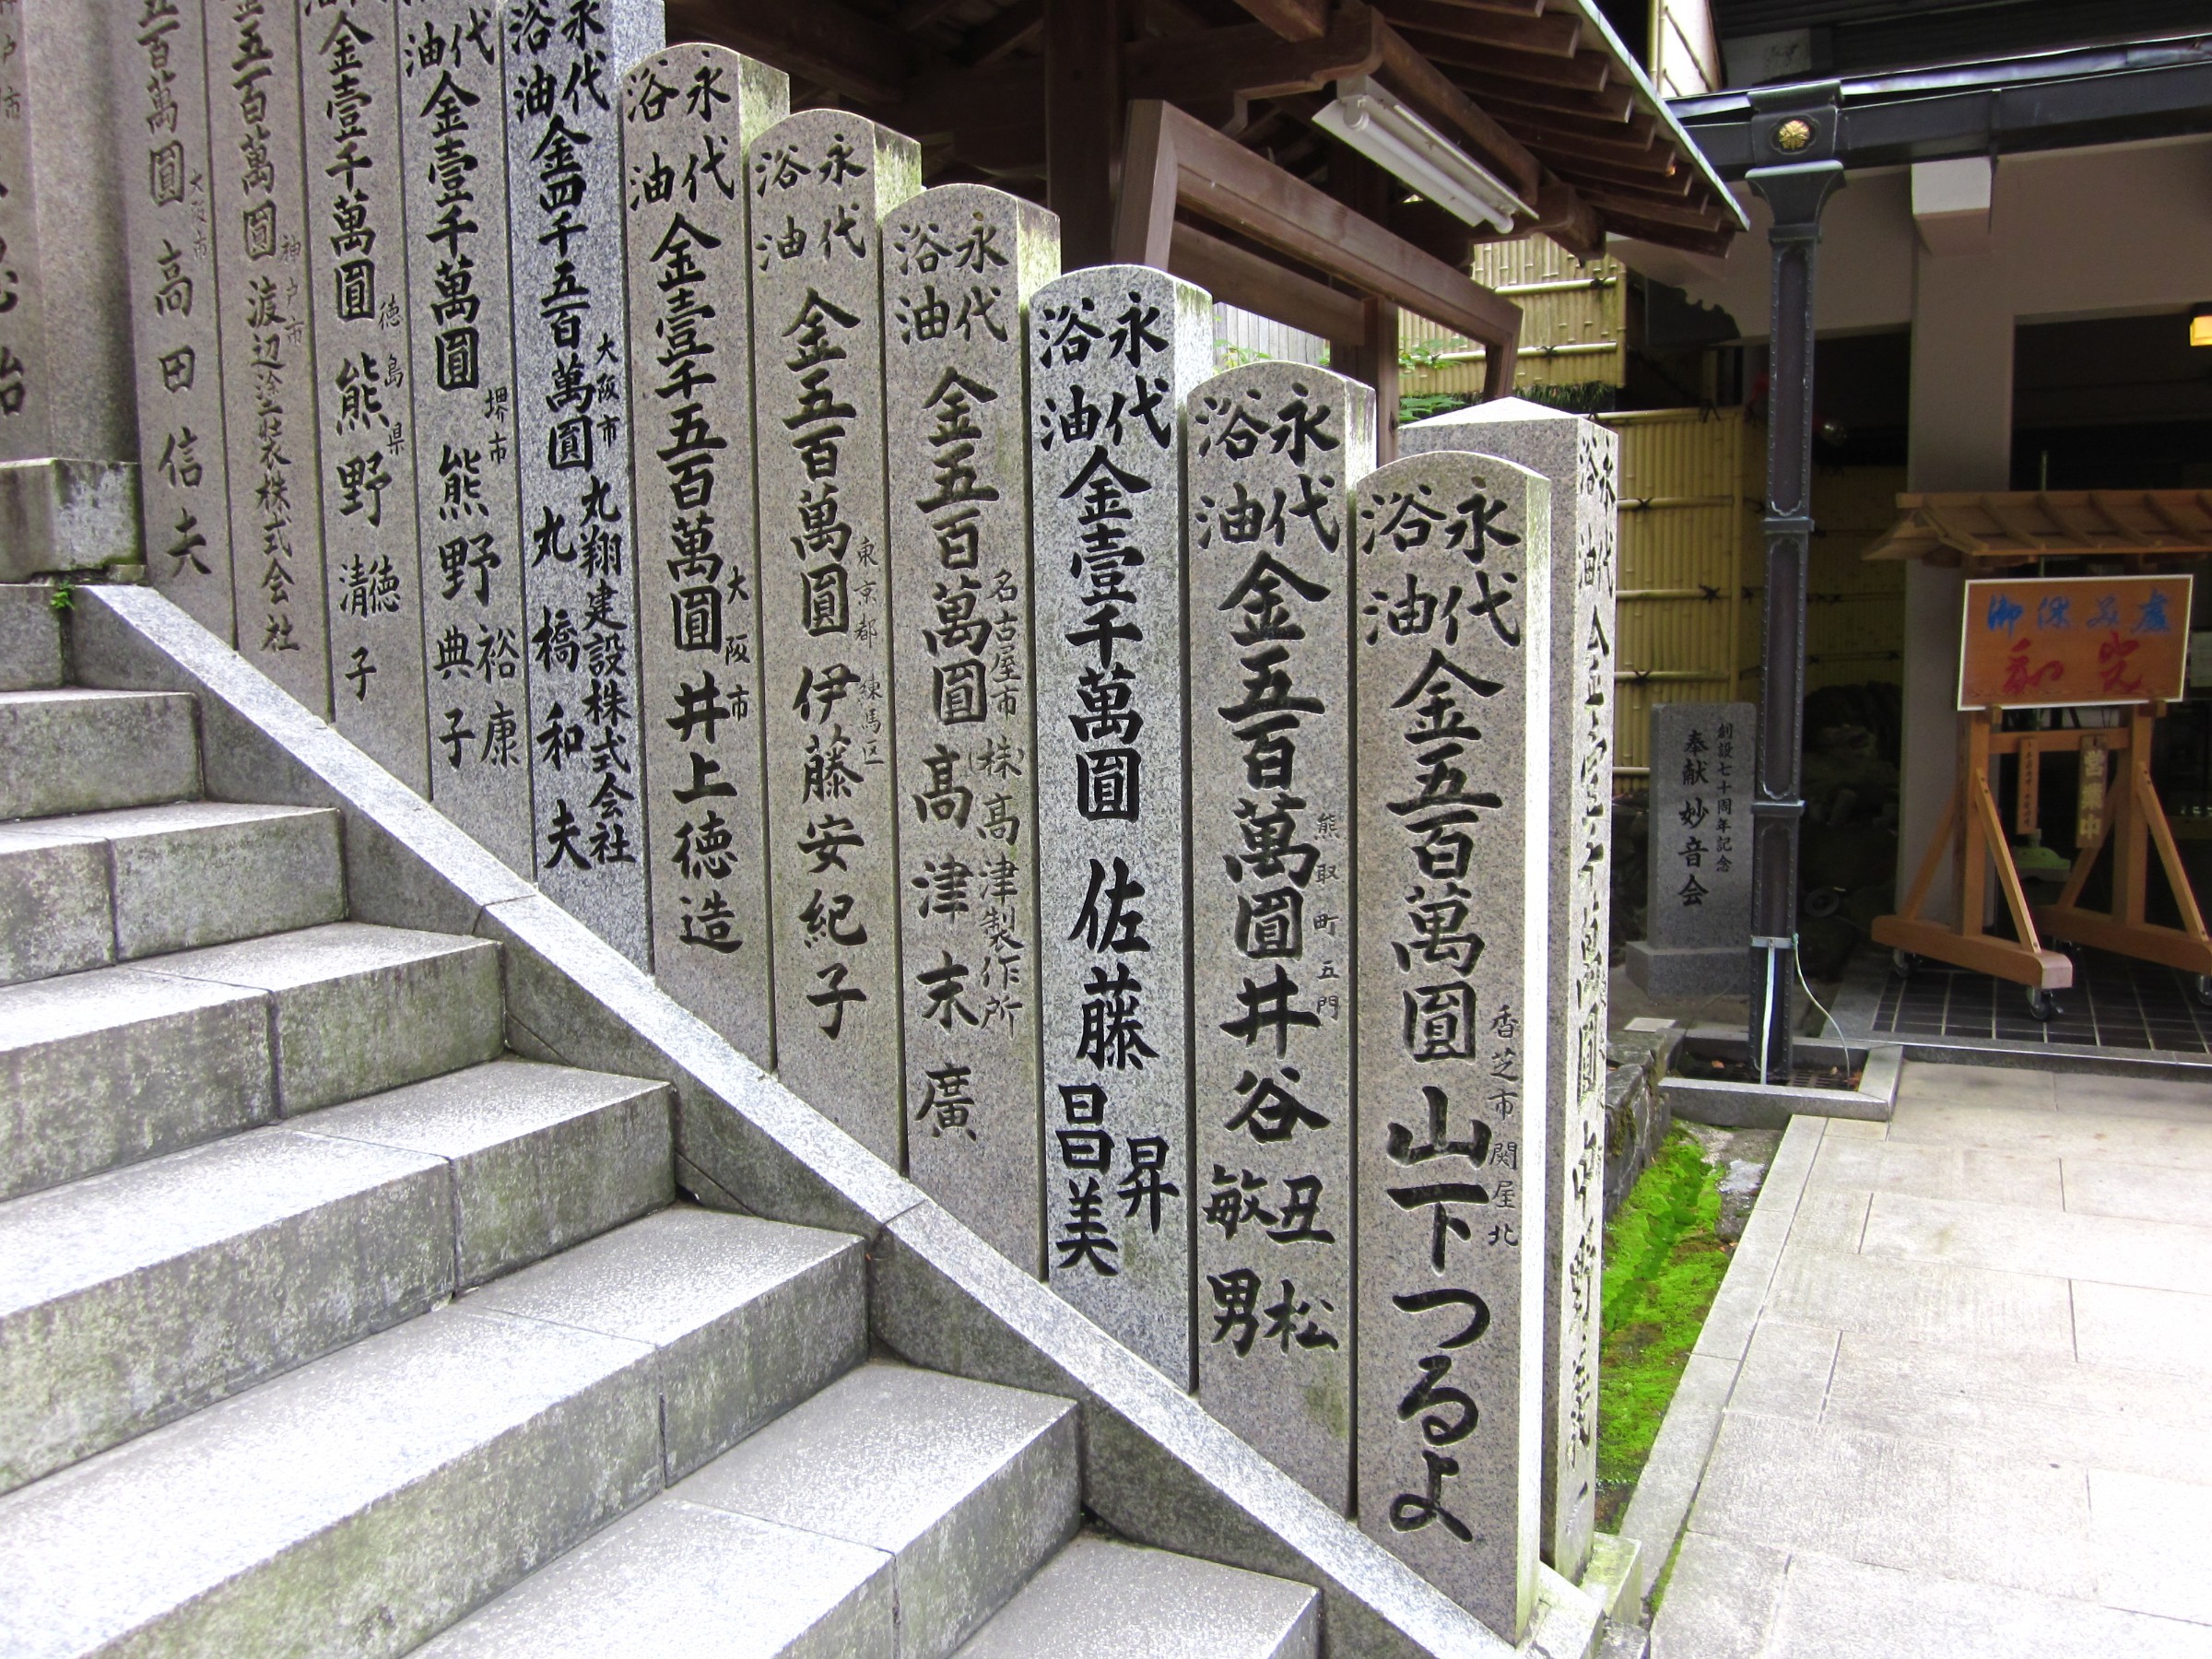 永代
浴油
金五百萬圓
香芝市関屋北
山下つるよ
永代
浴油
金五百萬圓
熊取町五門
井谷
丑松
敏男
永代
浴油
金壹千萬圓
佐藤
昇
昌美
永代
浴油
金五百萬圓
名古屋市
株高津製作所
高津末廣
永代
浴油
金五百萬圓
東京都練馬区
伊藤安紀子
永代
浴油
金壹千五百萬圓
大阪市
井上徳造
永代
浴油
金四千五百萬圓
大阪市
丸翔建設株式会社
丸橋和夫
代
油
金壹千萬圓
堺市
熊野
裕康
典子
金壹千萬圓
徳島県
熊野
徳
清子
金五百萬圓
神戸市
渡辺塗装株式会社
五百萬圓
大阪市
高田信夫
永代
浴油
創設七十周年記念
奉献 妙音会
営業中